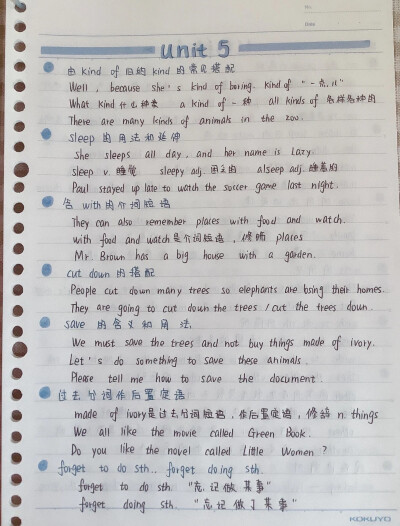 No.
Date
Unit 5
由kind of 归纳 kind 的常见搭配
Well, because she's kind of boring. kind of "一点儿"
What kind 什么种类 a kind of 一种 all kinds of 各样各种的
There are many kinds of animals in the zoo.
sleep 的用法和延伸
She sleeps all day, and her name is Lazy.
sleep v. 睡觉 sleepy adj. 困乏的 alseep adj. 睡着的
Paul stayed up late to watch the soccer game last night.
含 with 的介词短语
They can also remember places with food and watch.
with food and watch是介词短语，修饰 places
Mr. Brown has a big house with a garden.
cut down 的搭配
People cut down many trees so elephants are losing their homes.
They are going to cut down the trees / cut the trees down.
save 的含义和用法
We must save the trees and not buy things made of ivory.
Let's do something to save these animals.
Please tell me how to save the document.
过去分词作后置定语
made of ivory是过去分词短语，作后置定语，修饰 n. things
We all like the movie called Green Book.
Do you like the novel called Little Women ?
forget to do sth.. forget doing sth.
forget to do sth "忘记做某事"
forget doing sth. "忘记做了某事"
KOKUYO